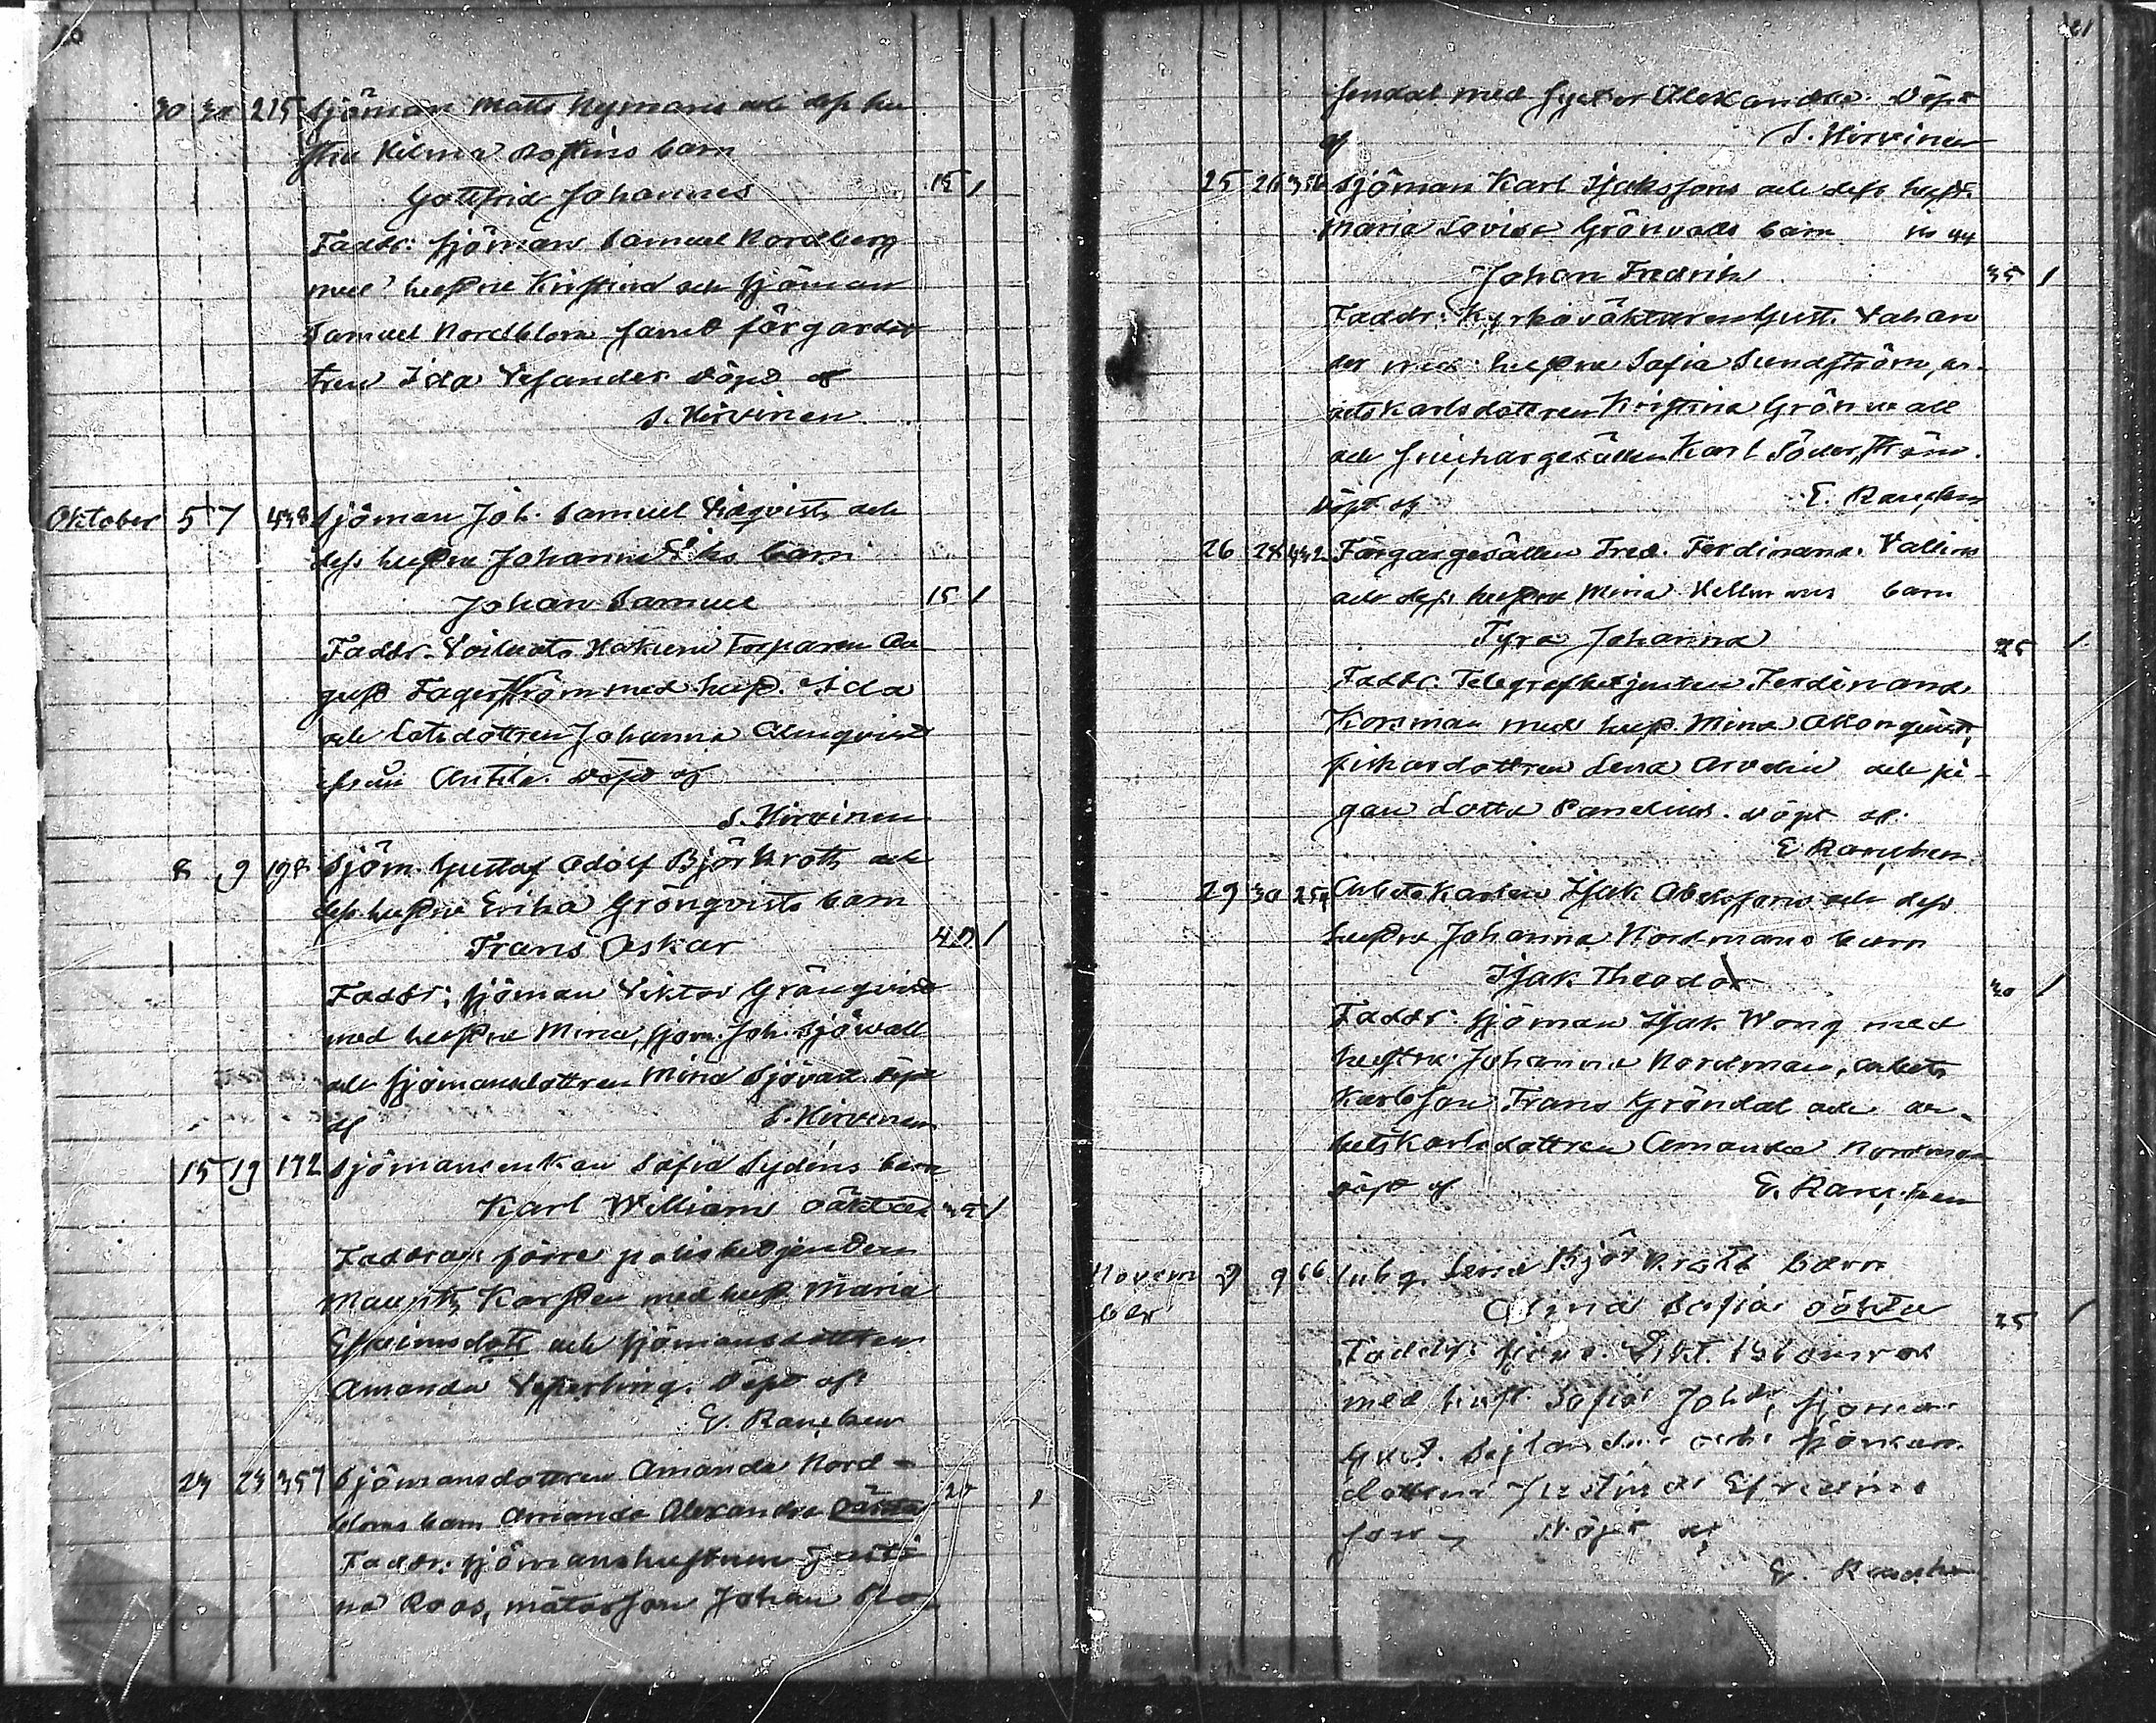 30 30 215 Sjöman Matts Nymans och dess hu
stru Hilma barn
Gottfrid Johannes 15 1
Faddr: sjöman Samuel Nordberg
med hustru Kristina och sjöman
Samuel Nordblom samt färgardot
tren Ida Vesander. Döpt af
S. Hirvinen
Oktober 5 7 Sjöman Joh. Samuel och
dess hustru Johanna barn
Johan Samuel 15 1
Faddr. Torparen Au
gust Fagerström med hust. Ida
och dottren Johanna Almqvist
ifrån Anttila. Döpt af
S. Hirvinen
8 9 198 Sjöm. Gustaf Adolf Björkroth och
dess hustru Erika Grönqvists barn
Frans Oskar 40 1
Faddr: sjöman Viktor Grönqvist
med hustru Mina, sjöm. Joh. Sjövall
och sjömansdottren Mina Sjövall. Döpt
af S. Hirvinen
15 19 172 Sjömansenkan Sofia Sydéns barn
Karl William oäkta 1
Faddrar: förre polisbetjenten
Mauritz Karsten med hust Maria
Efraimsdotr och sjömansdottren
Amanda Vesterling. Döpt af
E. Rancken
23 23 357 Sjömansdottren Amanda Nord-
bloms barn Amanda Alexandra oäkta 1
Faddr: sjömanshustrun Justi
na Roos, mätarson Johan
21
sendal med syster Alexandra. Döpt
af S. Hirvinen
25 26 Sjöman Karl Isakssons och dess hust.
Maria Lovisa Grönvalls barn
Johan Fredrik 35 1
Faddr: Kyrkoväktaren Gust. Vahan
der med hustru Sofia Sundström, ar-
betskarlsdottren Kristina Grönvall
och snickargesällen Karl Söderström.
Döpt af E. Rancken
26 28 442 Färgargesällen Fred. Ferdinand Vallins
och dess hustru Mina Hellmans barn
Tyra Johanna 25 1
Faddr. Telegrafbetjenten Ferdinand
Korsman med hust. Mina
fiskardottren Lena Arvelin och pi-
gan Lotta Panelius. Döpt af
E. Rancken
29 30 254 Arbetskarlen Isak Abelssons och dess
hustru Johanna Nordmans barn
Isak Theodor 30 1
Faddr: sjöman Isak Wong med
hustru Johanna Nordman, arbets
karlsson Frans Gröndal och ar-
betskarlsdottren Amanda Nordman
Döpt af E. Rancken
Novem
ber 9 66 Inhg. Lena Björkroths barn
Alma Sofia oäkta 25 1
Faddr: sjöm. Vikt.
med hust. Sofia Johdr, sjöman
Gust. och sjöman
dottren Justina Efraims
son, Döpt af
E. Rancken